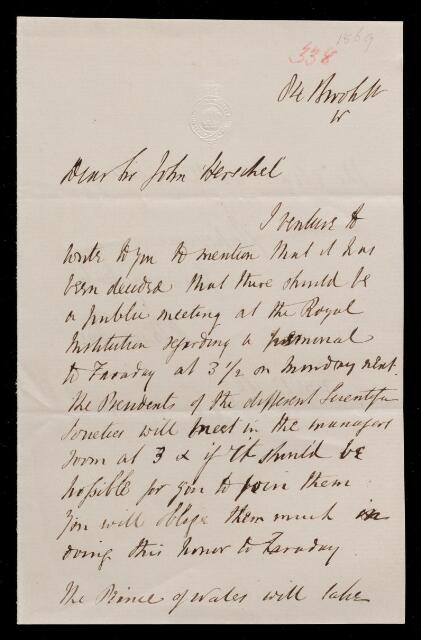 1869
338
84 Brook St
W
Dear Sir John Herschel
I venture to
write to you to mention that it has
been decided that there should be
a public meeting at the Royal
Institution regarding a memorial
to Faraday at 3 1/2 on Monday next.
The Presidents of the different Scientific
Societies will meet in the managers
room at 3 & if it should be
possible for you to join them
you will oblige them much in
doing this honor to Faraday
The Prince of Wales will take